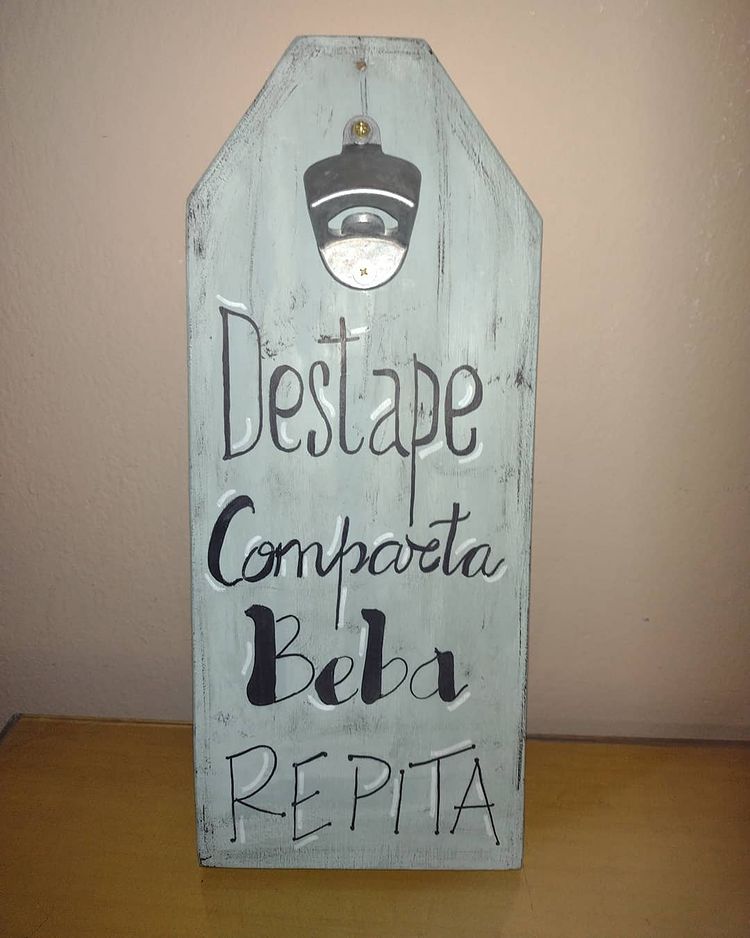 Destape
Comparta
Beba
REPITA